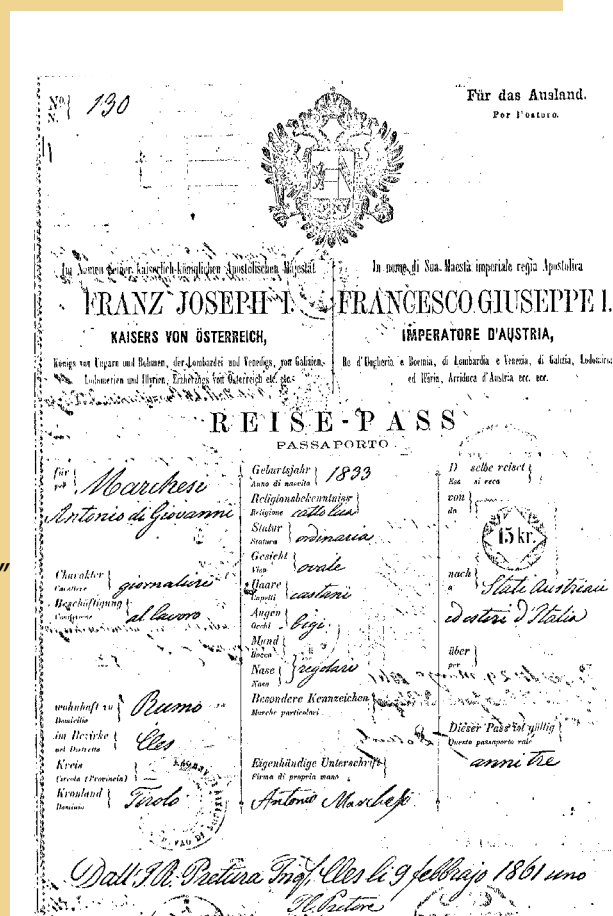 No.
N.
130
Für das Ausland.
Per l'estero.
Im Namen Seiner kaiserlich-königlichen Apostolischen Majestät
FRANZ JOSEPH I.
KAISERS VON ÖSTERREICH,
Königs von Ungarn und Böhmen, der Lombardei und Venedigs, von Galizien,
Lodomerien und Illyrien, Erzherzogs von Österreich etc. etc.
In nome di Sua Maestà imperiale regia Apostolica
FRANCESCO GIUSEPPE I.
IMPERATORE D'AUSTRIA,
Re d'Ungheria e Boemia, di Lombardia e Venezia, di Galizia, Lodomiria
ed Illiria, Arciduca d'Austria ecc. ecc.
REISE-PASS
PASSAPORTO
für
per
Marchesi
Antonio di Giovanni
Charakter
Carattere
giornaliere
Beschäftigung
al lavoro
wohnhaft zu
Domicilio
Rumo
im Bezirke
nel Distretto
Cles
Kreis
Circolo (Provincia)
Kronland
Dominio
Tirolo
Geburtsjahr
Anno di nascita
1833
Religionsbekenntniss
Religione
cattolica
Statur
Statura
ordinaria
Gesicht
Viso
ovale
Haare
Capelli
castani
Augen
Occhi
bigi
Mund
Bocca
Nase
Naso
regolari
Besondere Kennzeichen
Marche particolari
Eigenhändige Unterschrift
Firma di propria mano
Antonio Marchesi
D selbe reiset
Esso si reca
von
da
15 kr.
nach
a
Stati Austriaci
ed esteri d'Italia
über
per
Dieser Pass ist gültig
Questo passaporto vale
anni tre
Dall' I. R. Pretura Cles li 9 febbrajo 1861 uno
Il Pretore
"